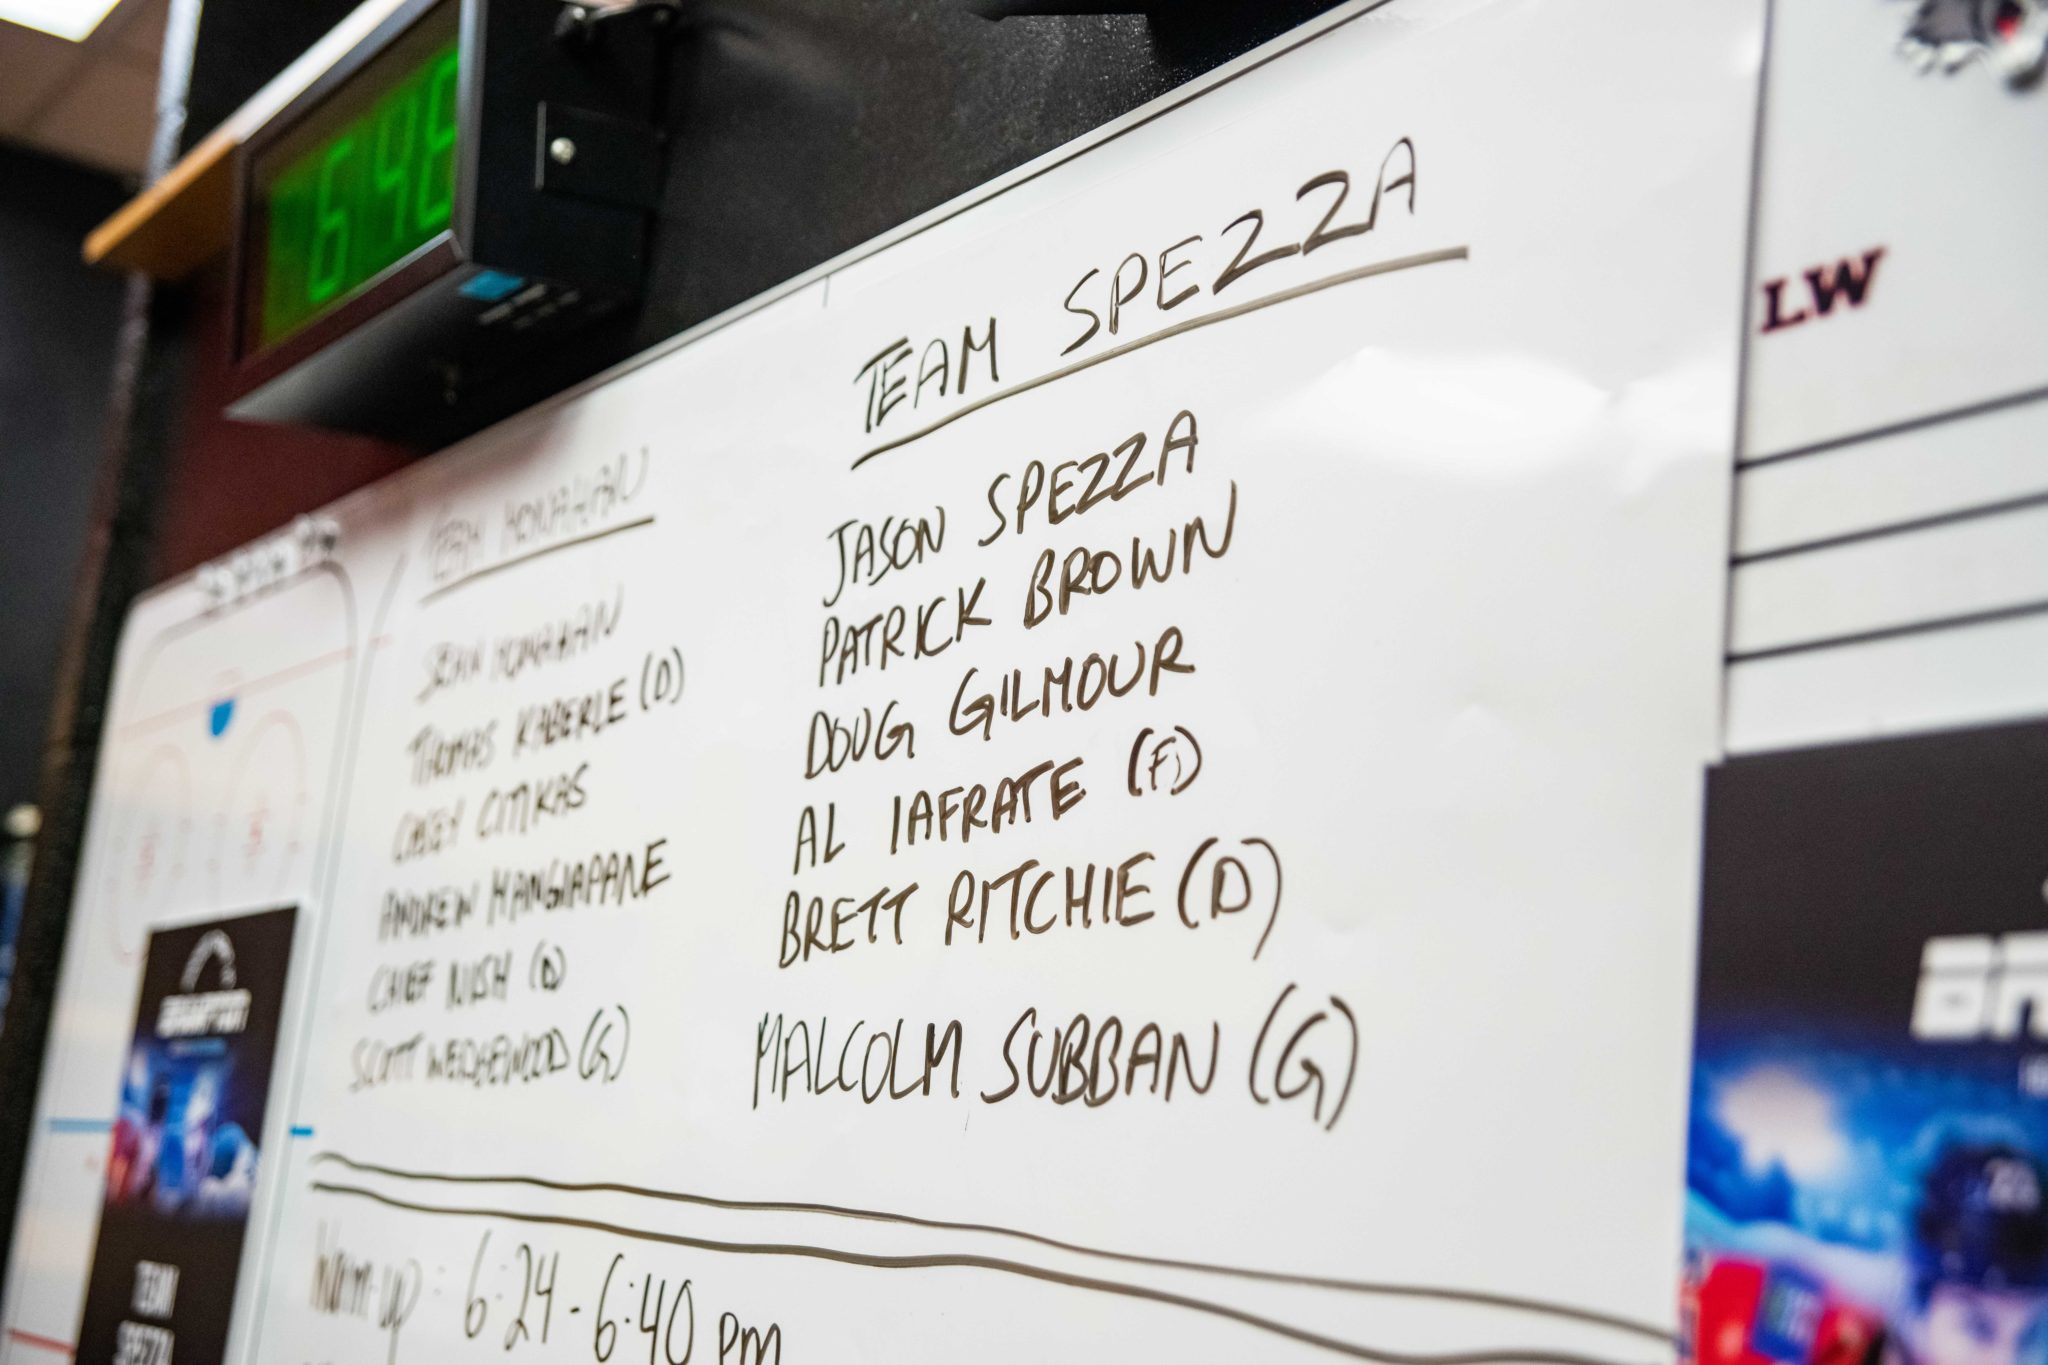 TEAM MONAHAN
SEAN MONAHAN
THOMAS KABERLE (D)
CASEY CITIKAS
ANDREW MANGIAPANE
CHIEF NISH (D)
SCOTT WEDGEWOOD (G)
TEAM SPEZZA
JASON SPEZZA
PATRICK BROWN
DOUG GILMOUR
AL IAFRATE (F)
BRETT RITCHIE (D)
MALCOLM SUBBAN (G)
WARM-UP: 6:24-6:40 PM
LW
TEAM
SPEZZA